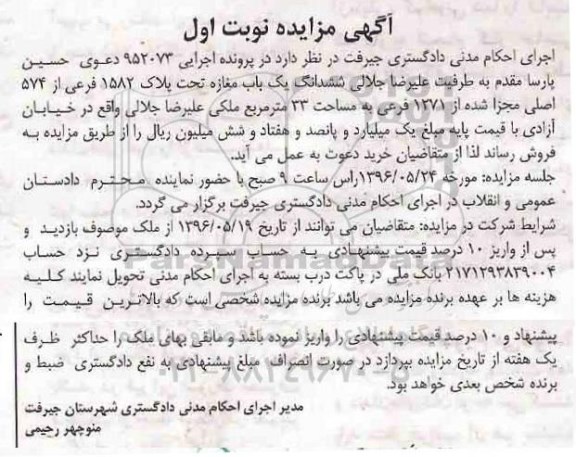 آگهی مزایده نوبت اول
اجرای احکام مدنی دادگستری جیرفت در نظر دارد در پرونده اجرایی ۹۵۲۰۷۳ دعوی حسین
پارسا مقدم به طرفیت علیرضا جلالی ششدانگ یک باب مغازه تحت پلاک ۱۵۸۲ فرعی از ۵۷۴
اصلی مجزا شده از ۱۲۷۱ فرعی به مساحت ۳۳ مترمربع ملکی علیرضا جلالی واقع در خیابان
آزادی با قیمت پایه مبلغ یک میلیارد و پانصد و هفتاد و شش میلیون ریال را از طریق مزایده به
فروش رساند لذا از متقاضیان خرید دعوت به عمل می آید.
جلسه مزایده: مورخه ۱۳۹۶/۰۵/۲۴راس ساعت ۹ صبح با حضور نماینده محترم دادستان
عمومی و انقلاب در اجرای احکام مدنی دادگستری جیرفت برگزار می گردد.
شرایط شرکت در مزایده: متقاضیان می توانند از تاریخ ۱۳۹۶/۰۵/۱۹ از ملک موصوف بازدید و
پس از واریز ۱۰ درصد قیمت پیشنهادی به حساب سپرده دادگستری نزد حساب
۲۱۷۱۲۹۳۸۳۹۰۰۴ بانک ملی در پاکت درب بسته به اجرای احکام مدنی تحویل نمایند کلیه
هزینه ها بر عهده برنده مزایده می باشد برنده مزایده شخصی است که بالاترین قیمت را
پیشنهاد و ۱۰ درصد قیمت پیشنهادی را واریز نموده باشد و مابقی بهای ملک را حداکثر ظرف
یک هفته از تاریخ مزایده بپردازد در صورت انصراف مبلغ پیشنهادی به نفع دادگستری ضبط و
برنده شخص بعدی خواهد بود.
مدیر اجرای احکام مدنی دادگستری شهرستان جیرفت
منوچهر رحیمی